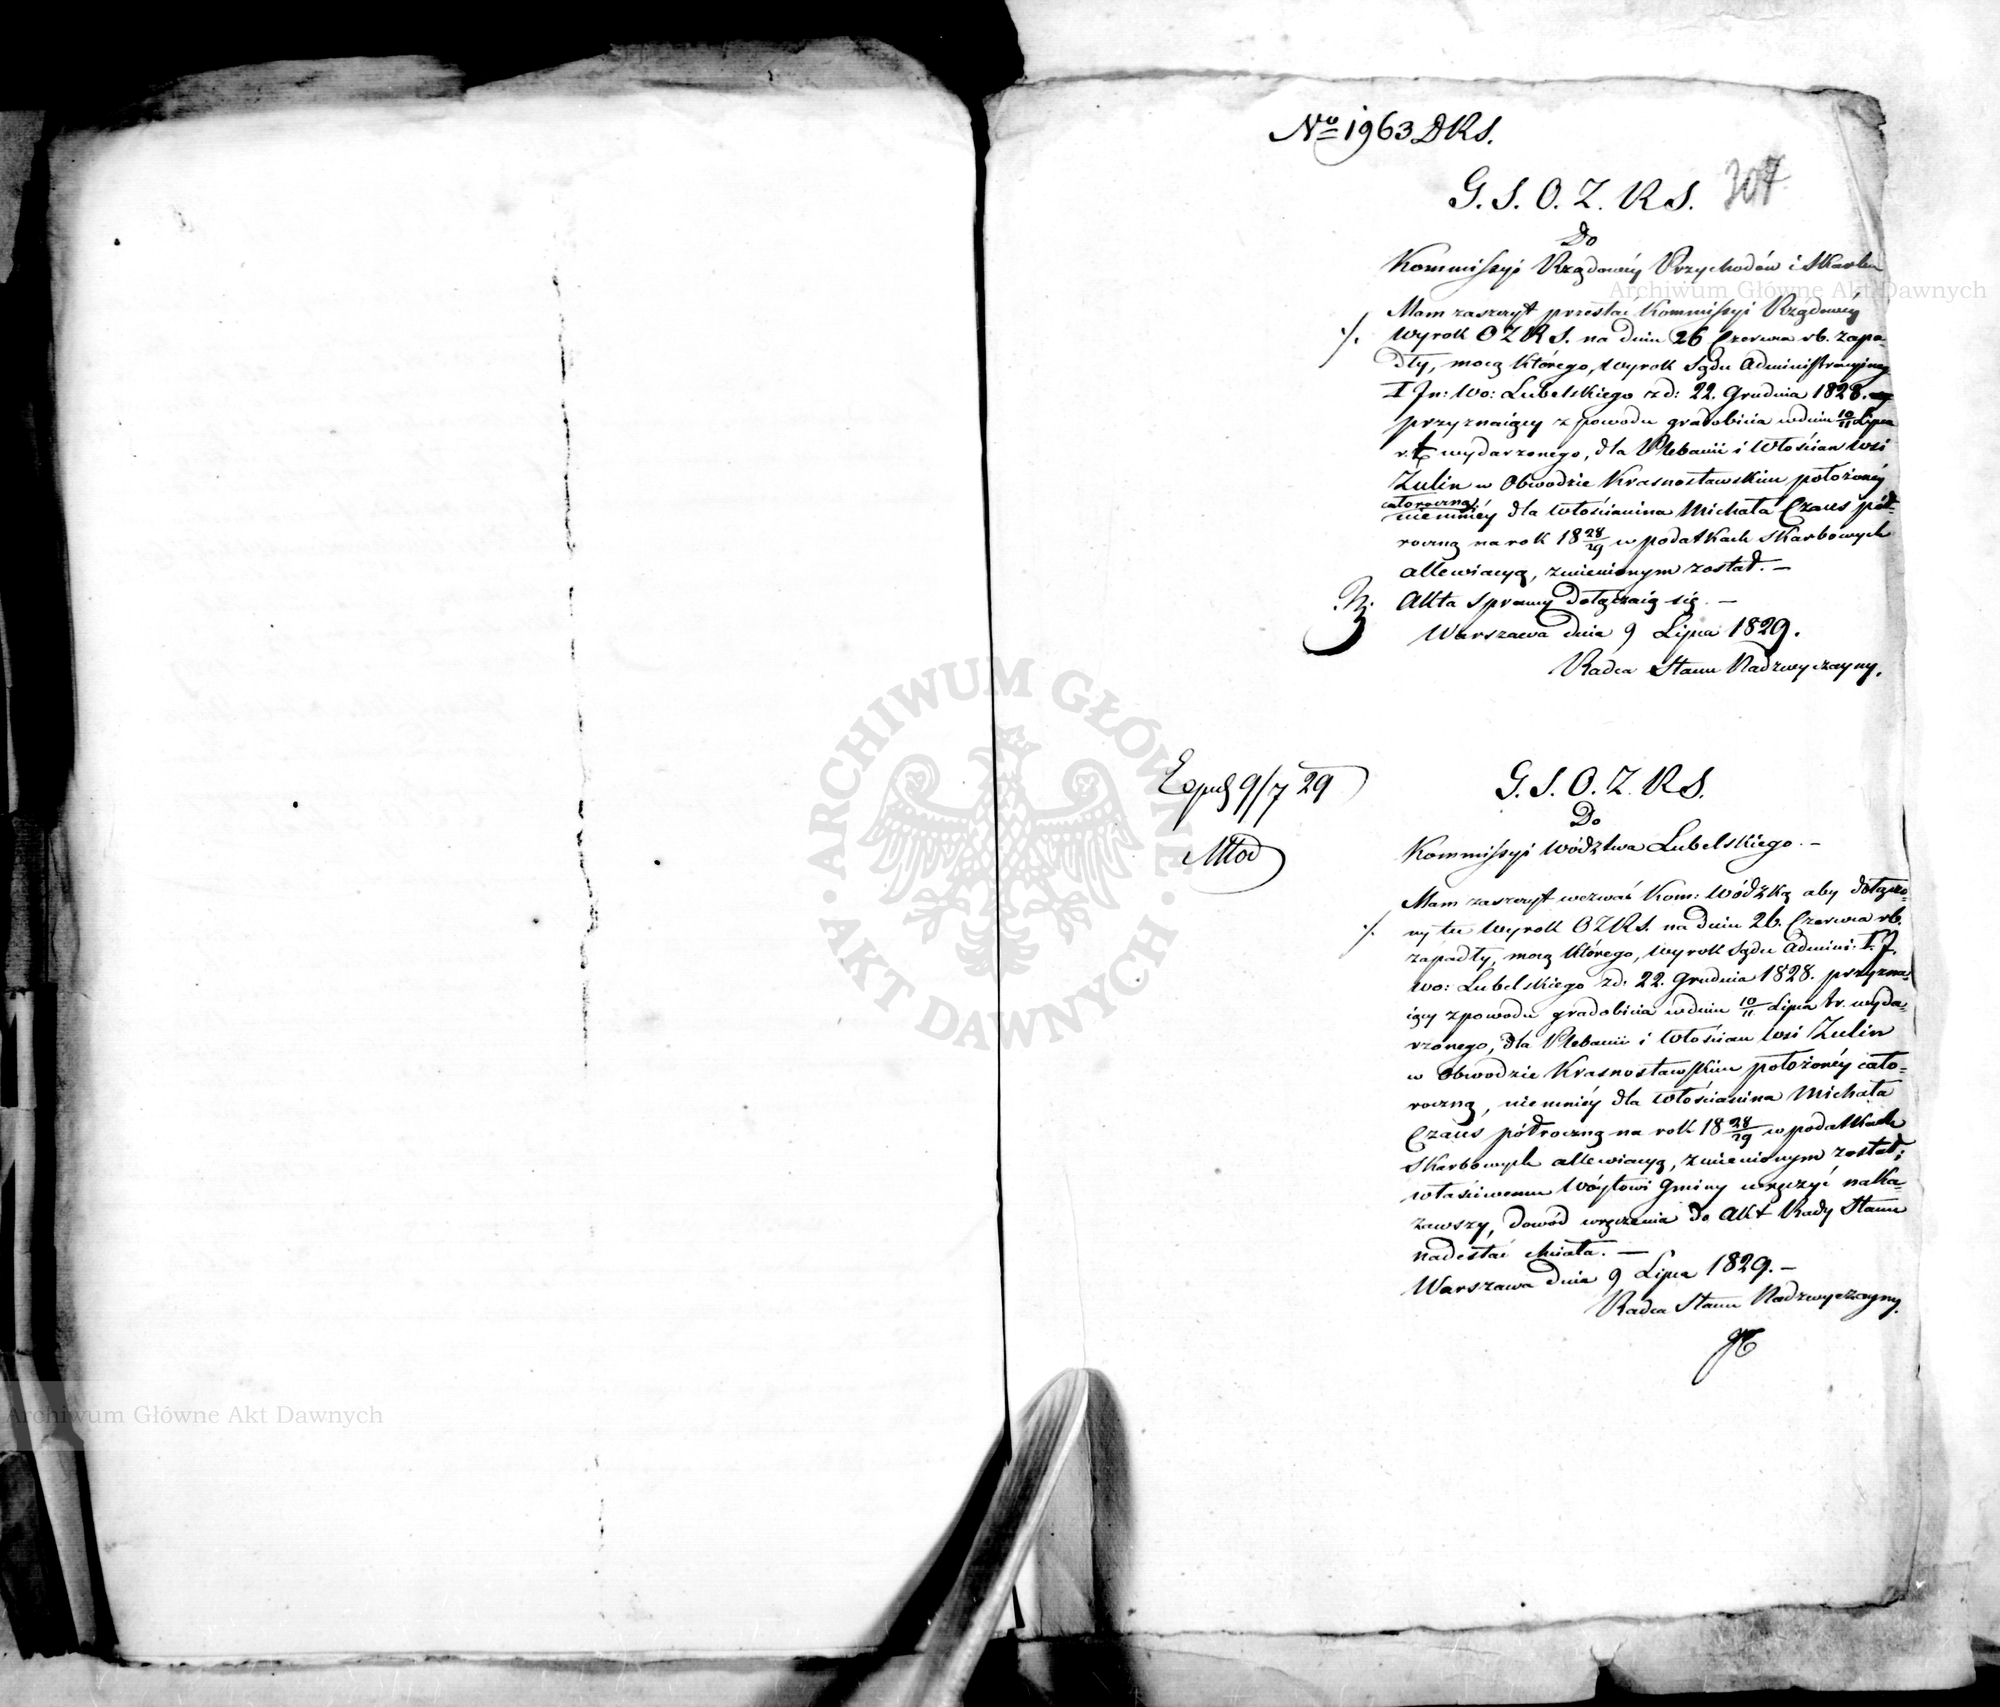 No 1963 DKS.
G. S. O. Z. R S. 307
Do
Kommissyi Rządowéy Przychodów i Skarbu
Mam zaszczyt przesłać Kommissyi Rządowéy
·/. Wyrok O Z R S. na dniu 26 Czerwca rb. zapa-
dły, mocą którego, wyrok Sądu Administracyjneg
I Jn: Wo: Lubelskiego z d: 22. Grudnia 1828.
przyznaiący z powodu gradobicia w dniu 10/11 Lipca
r. t. wydarzonego, dla Plebanii i Włościan wsi
Żulin w Obwodzie Krasnostawskim położonéy
całoroczną,
niemniéy dla włościanina Michała Czaus pół-
roczną na rok 18 28/29 w podatkach skarbowych
allewiacyą, zmienionym został. —
Akta sprawy dołączaią się. —
Warszawa dnia 9 Lipca 1829.
Radca Stanu Nadzwyczayny.
Expuls 9/7 29
Młod
G. S. O. Z. R S.
Do
Kommissyi Wództwa Lubelskiego. —
Mam zaszczyt wezwać Kom: Wódzką aby dołączo-
·/. ny tu Wyrok O Z R S. na dniu 26. Czerwca rb.
zapadły, mocą którego, wyrok Sądu Admini: I. J.
wo: Lubelskiego z d: 22. Grudnia 1828. przyzna-
iący z powodu gradobicia w dniu 10/11 Lipca t. r. wyda-
rzonego, dla Plebanii i Włościan wsi Żulin
w Obwodzie Krasnostawskim położonéy cało-
roczną, niemniéy dla włościanina Michała
Czaus półroczną na rok 18 28/29 w podatkach
Skarbowych allewiacyą, zmienionym został;
właściwemu Wóytowi Gminy wręczyć naka-
zawszy, dowód wręczenia do Akt Rady Stanu
nadesłać chciała. —
Warszawa dnia 9 Lipca 1829. —
Radca Stanu Nadzwyczayny.
Archiwum Główne Akt Dawnych
ARCHIWUM GŁÓWNE · AKT DAWNYCH ·
Archiwum Główne Akt Dawnych